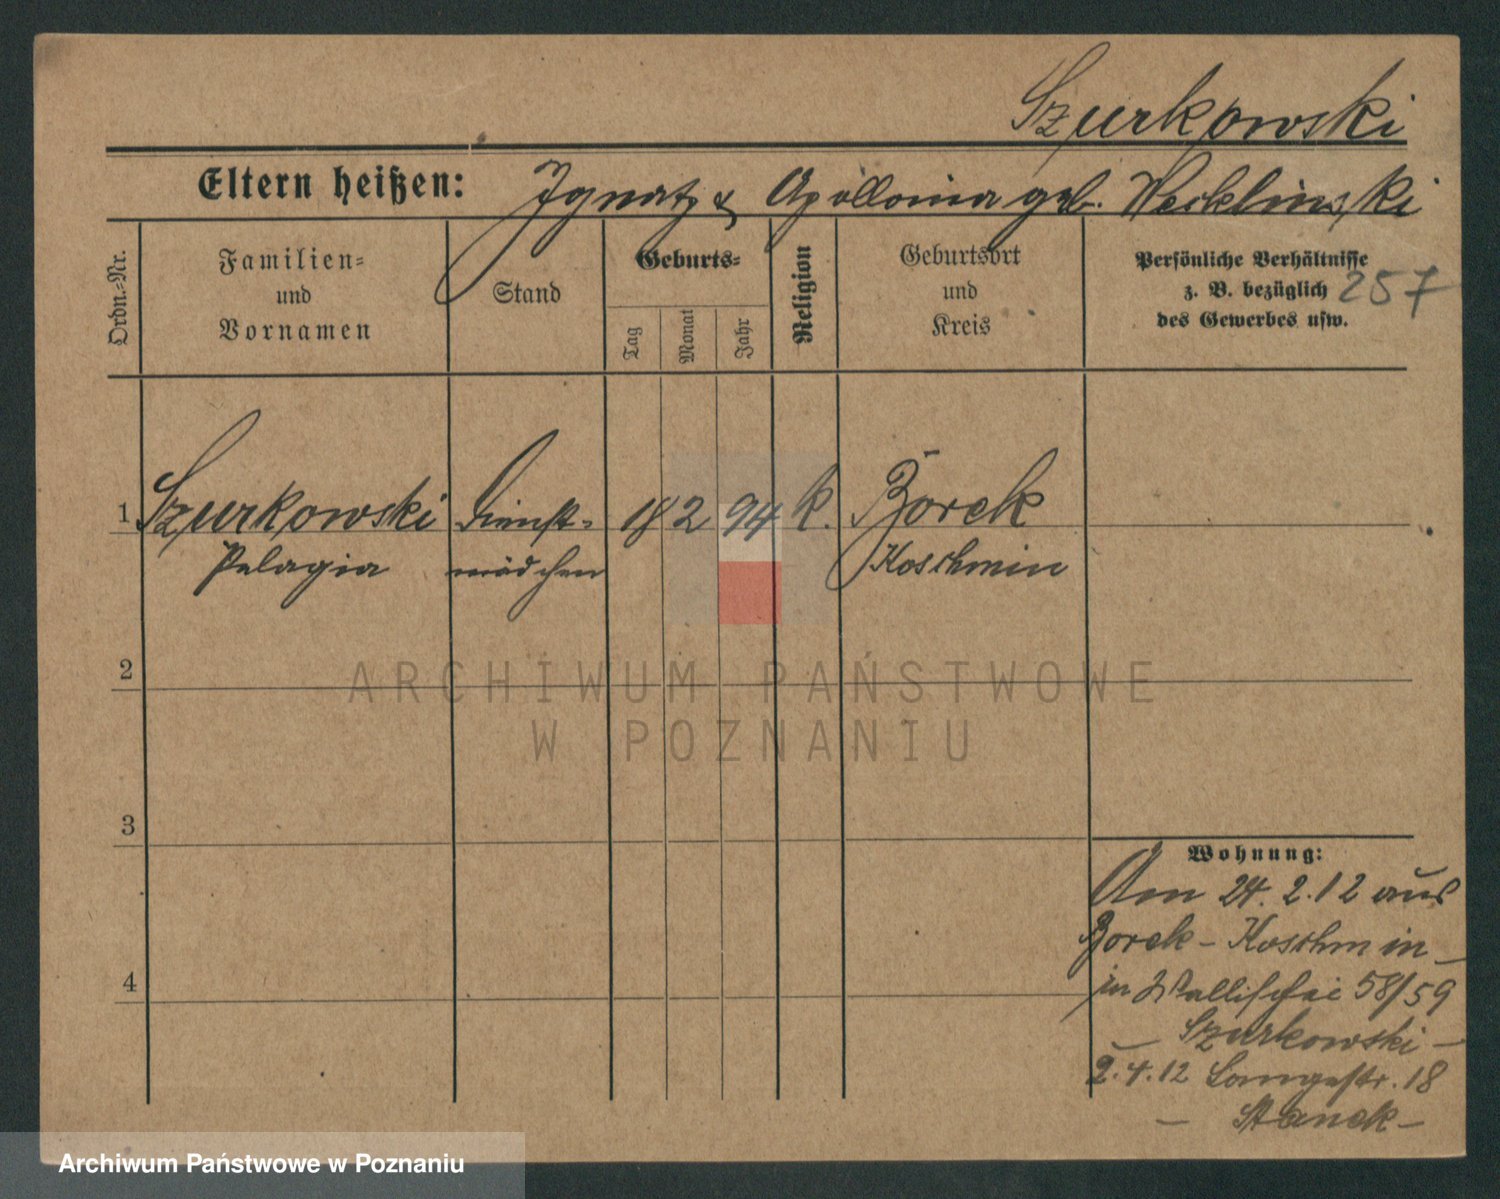 Szurkowski
Eltern heißen: Ignatz & Apollonia geb.
Ordn.-Nr.
Familien-
und
Vornamen
Stand
Geburts-
Tag
Monat
Jahr
Religion
Geburtsort
und
Kreis
Persönliche Verhältnisse
z. B. bezüglich
des Gewerbes usw.
257
1 Szurkowski Dienst- 18 2 94 k. Borek
Pelagia mädchen Koschmin
2
3
4
Wohnung:
Am 24. 2. 12 aus
Borek - Koschmin -
in Wallischei 58/59
- Szurkowski -
2. 4. 12 Langestr. 18
- Stanek -
ARCHIWUM PAŃSTWOWE
W POZNANIU
Archiwum Państwowe w Poznaniu